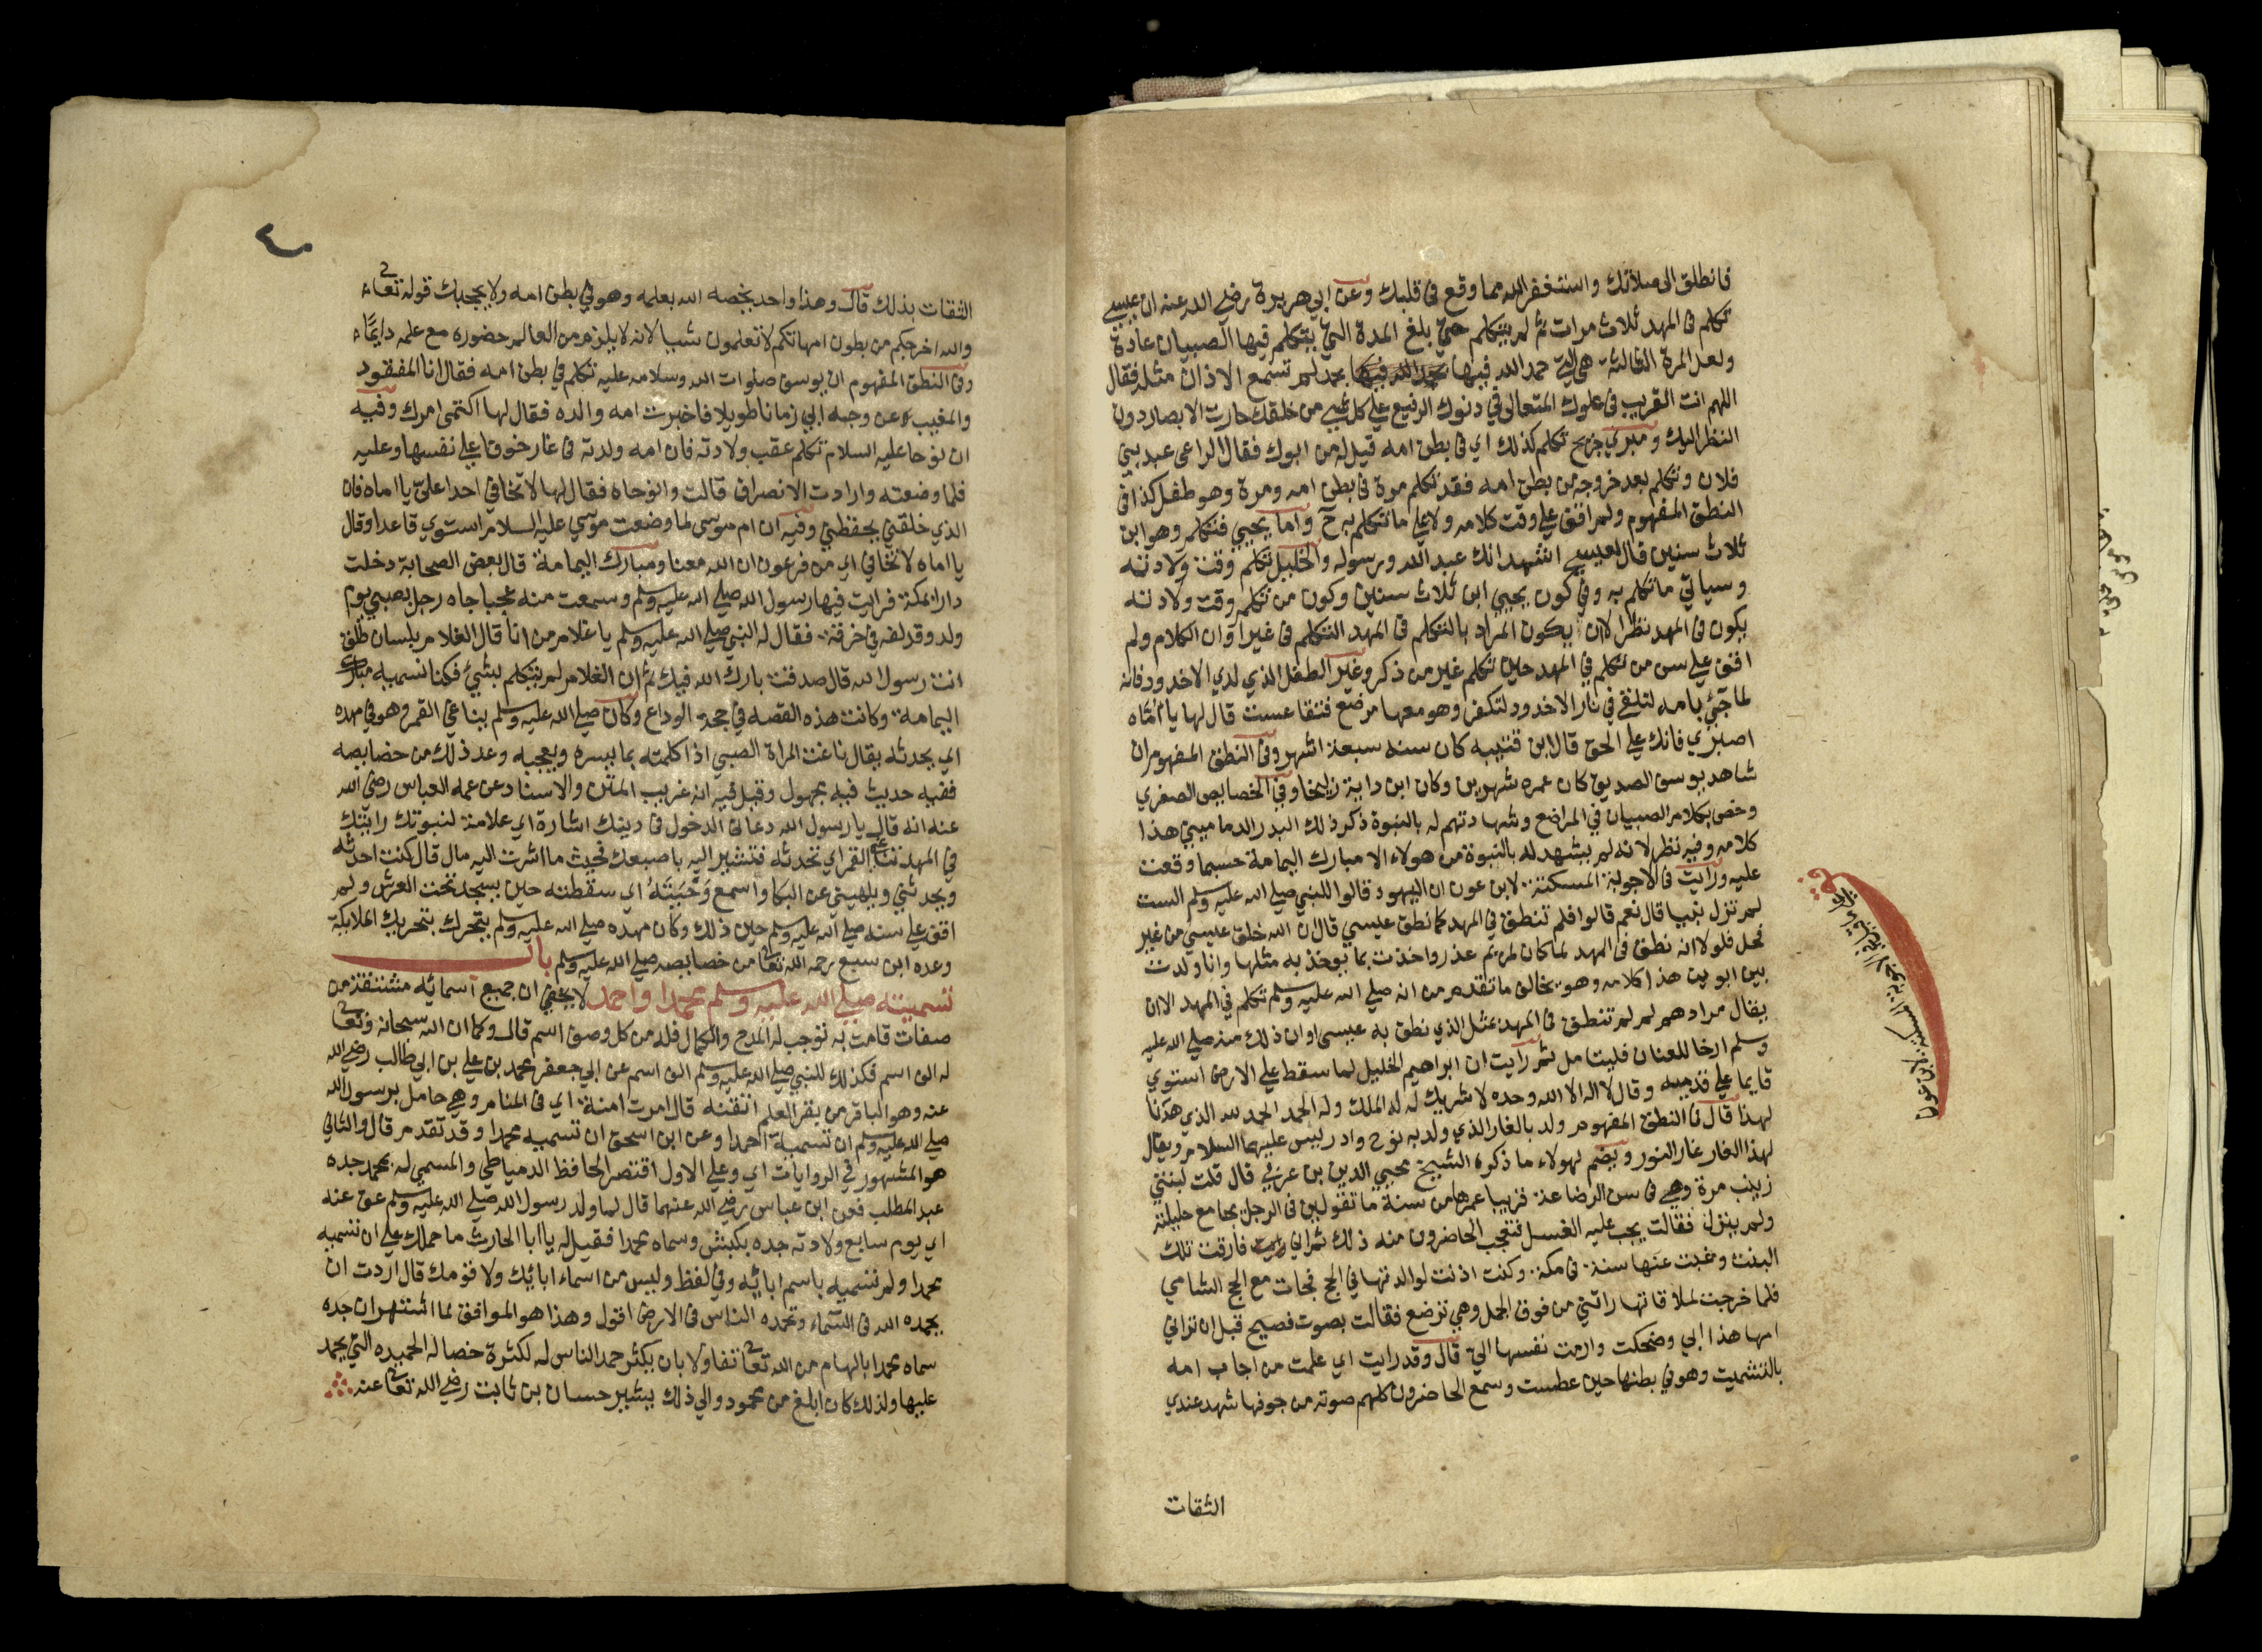 فانطلق الى صلاتك واستغفر الله مما وقع في قلبك وعن ابي هريرة رضي الله عنه ان عيسي
تكلم في المهد ثلاث مرات ثم لم يتكلم حتي بلغ المدة التي يتكلم فيها الصبيان عادة
ولعل المرة الثالثة هي التي حمد الله فيها بحمد لم تسمع الاذان مثله فقال
اللهم انت القريب في علوك المتعالي في دنوك الرفيع علي كل شي من خلقك حارت الابصار دون
النظر اليك ومبري جريج تكلم كذلك اي في بطن امه قيل له من ابوك فقال الراعي عبد بني
فلان وتكلم بعد خروجه من بطن امه فقد تكلم مرة في بطن امه ومرة وهو طفل كذا في
النطق المفهوم ولم اقف علي وقت كلامه ولا علي ما تكلم به ح واما يحيي فتكلم وهو ابن
ثلاث سنين قال لعيسي اشهد انك عبد الله ورسوله والخليل تكلم وقت ولادته
وسياتي ما تكلم به وفي كون يحيي ابن ثلاث سنين وكون من تكلم وقت ولادته
يكون في المهد نظر الا ان يكون المراد بالتكلم في المهد التكلم في غير اوان الكلام ولم
اقف علي سن من تكلم في المهد حين تكلم غير من ذكر وغير الطفل الذي لدي الاخدود فانه
لما جئ بامه لتلقي في نار الاخدود لتكفر وهو معها مرضع فتقاعست قال لها يا اماه
اصبري فانك علي الحق قال ابن قتيبه كان سنه سبعة اشهر وفي النطق المفهوم ان
شاهد يوسف الصديق كان عمره شهرين وكان ابن داية زليخا وفي الخصايص الصغري
وخص بكلام الصبيان في المراضع وشهادتهم له بالنبوة ذكر ذلك البدر الدماميني هذا
كلامه وفيه نظر لانه لم يشهد له بالنبوة من هولاء الا مبارك اليمامة حسبما وقعت
عليه ورايت في الاجوبة المسكتة لابن عون ان اليهود قالوا للنبي صلي الله عليه وسلم الست
لم تزل نبيا قال نعم قالوا فلم تنطق في المهد كما نطق عيسي قال ان الله خلق عيسي من غير
فحل فلولا انه نطق في المهد لما كان لمريم عذر واخذت بما يوخذ به مثلها وانا ولدت
بين ابوين هذا كلامه وهو يخالف ما تقدم من انه صلي الله عليه وسلم تكلم في المهد الا ان
يقال مرادهم لم لم تنطق في المهد بمثل الذي نطق به عيسي او ان ذلك منه صلي الله عليه
وسلم ارخا للعنان فليتامل ثم رايت ان ابراهيم الخليل لما سقط علي الارض استوي
قايما علي قدميه وقال لا اله الا الله وحده لا شريك له له الملك وله الحمد الحمد لله الذي هدانا
لهذا قال في النطق المفهوم ولد بالغار الذي ولد به نوح وادريس عليهما السلام ويقال
لهذا الغار غار النور ويضم لهولاء ما ذكره الشيخ محيي الدين بن عربي قال قلت لبنتي
زينب مرة وهي في سن الرضاعة قريبا عمرها من سنة ما تقولين في الرجل يجامع حليلته
ولم ينزل فقالت يجب عليه الغسل فتعجب الحاضرون منه ذلك ثم اني فارقت تلك
البنت وغبت عنها سنة في مكة وكنت اذنت لوالدتها في الحج فجات مع الحج الشامي
فلما خرجت لملاقاتها راتني من فوق الجمل وهي ترضع فقالت بصوت فصيح قبل ان تراني
امها هذا ابي وضحكت وارمت نفسها الي قال وقد رايت اي علمت من اجاب امه
بالتشميت وهو في بطنها حين عطست وسمع الحاضرون كلهم صوته من جوفها شهد عندي
الثقات
الثقات بذلك قال وهذا واحد يخصه الله بعلمه وهو في بطن امه ولا يحجبك قوله تعالي
والله اخرجكم من بطون امهاتكم لا تعلمون شيا لانه لا يلزم من العالم حضوره مع علمه دايما
وفي النطق المفهوم ان يوسف صلوات الله وسلامه عليه تكلم في بطن امه فقال انا المفقود
والمغيب عن وجه ابي زمانا طويلا فاخبرت امه والده فقال لها اكتمي امرك وفيه
ان نوحا عليه السلام تكلم عقب ولادته فان امه ولدته في غار خوفا علي نفسها وعليه
فلما وضعته وارادت الانصراف قالت وانوحاه فقال لها لا تخافي احدا علي يا اماه فان
الذي خلقني يحفظني وفيه ان ام موسي لما وضعت موسي عليه السلام استوي قاعدا وقال
يا اماه لا تخافي اي من فرعون ان الله معنا ومبارك اليمامة قال بعض الصحابة دخلت
دارا بمكة فرايت فيها رسول الله صلي الله عليه وسلم وسمعت منه عجبا جاه رجل بصبي يوم
ولد وقد لفه في خرقة فقال له النبي صلي الله عليه وسلم يا غلام من انا قال الغلام بلسان طلق
انت رسول الله قال صدقت بارك الله فيك ثم ان الغلام لم يتكلم بشئ فكنا نسميه مبارك
اليمامة وكانت هذه القصه في حجة الوداع وكان صلي الله عليه وسلم يناغي القمر وهو في مهده
اي يحدثه يقال ناغت المراة الصبي اذا كلمته بما يسره ويعجبه وعد ذلك من خصايصه
ففيه حديث فيه مجهول وقيل فيه انه غريب المتن والاسناد عن عمه العباس رضي الله
عنه انه قال يا رسول الله دعاني الدخول في دينك اشارة اي علامة لنبوتك رايتك
في المهد تناغي القمر اي تحدثه فتشير اليه باصبعك فحيث ما اشرت اليه مال قال كنت احدثه
ويحدثني ويلهيني عن البكا واسمع وجبته اي سقطته حين يسجد تحت العرش ولم
اقف علي سنه صلي الله عليه وسلم حين ذلك وكان مهده صلي الله عليه وسلم يتحرك بتحريك الملايكة
وعده ابن سبع رحمه الله تعالي من خصايصه صلي الله عليه وسلم باب
تسميته صلي الله عليه وسلم محمدا واحمد لا يخفي ان جميع اسمائه مشتقة من
صفات قامت به توجب له المدح والكمال فله من كل وصف اسم قال وكما ان الله سبحانه وتعالي
له الف اسم فكذلك للنبي صلي الله عليه وسلم الف اسم عن ابي جعفر محمد بن علي بن ابي طالب رضي الله
عنه وهو الباقر من بقر العلم اتقنه قال امرت امنة اي في المنام وهي حامل برسول الله
صلي الله عليه وسلم ان تسميه احمد وعن ابن اسحق ان تسميه محمدا وقد تقدم قال والثاني
هو المشهور في الروايات اي وعلي الاول اقتصر الحافظ الدمياطي والمسمي له بمحمد جده
عبد المطلب فعن ابن عباس رضي الله عنهما قال لما ولد رسول الله صلي الله عليه وسلم عق عنه
اي يوم سابع ولادته جده بكبش وسماه محمدا فقيل له يا ابا الحارث ما حملك علي ان تسميه
محمدا ولم تسميه باسم ابائه وفي لفظ وليس من اسماء ابائك ولا قومك قال اردت ان
يحمده الله في السماء وتحمده الناس في الارض اقول وهذا هو الموافق لما اشتهر ان جده
سماه محمدا بالهام من الله تعالي تفاولا بان يكثر حمد الناس له لكثرة خصاله الحميده التي يحمد
عليها ولذلك كان ابلغ من محمود والي ذلك يشير حسان بن ثابت رضي الله تعالي عنه